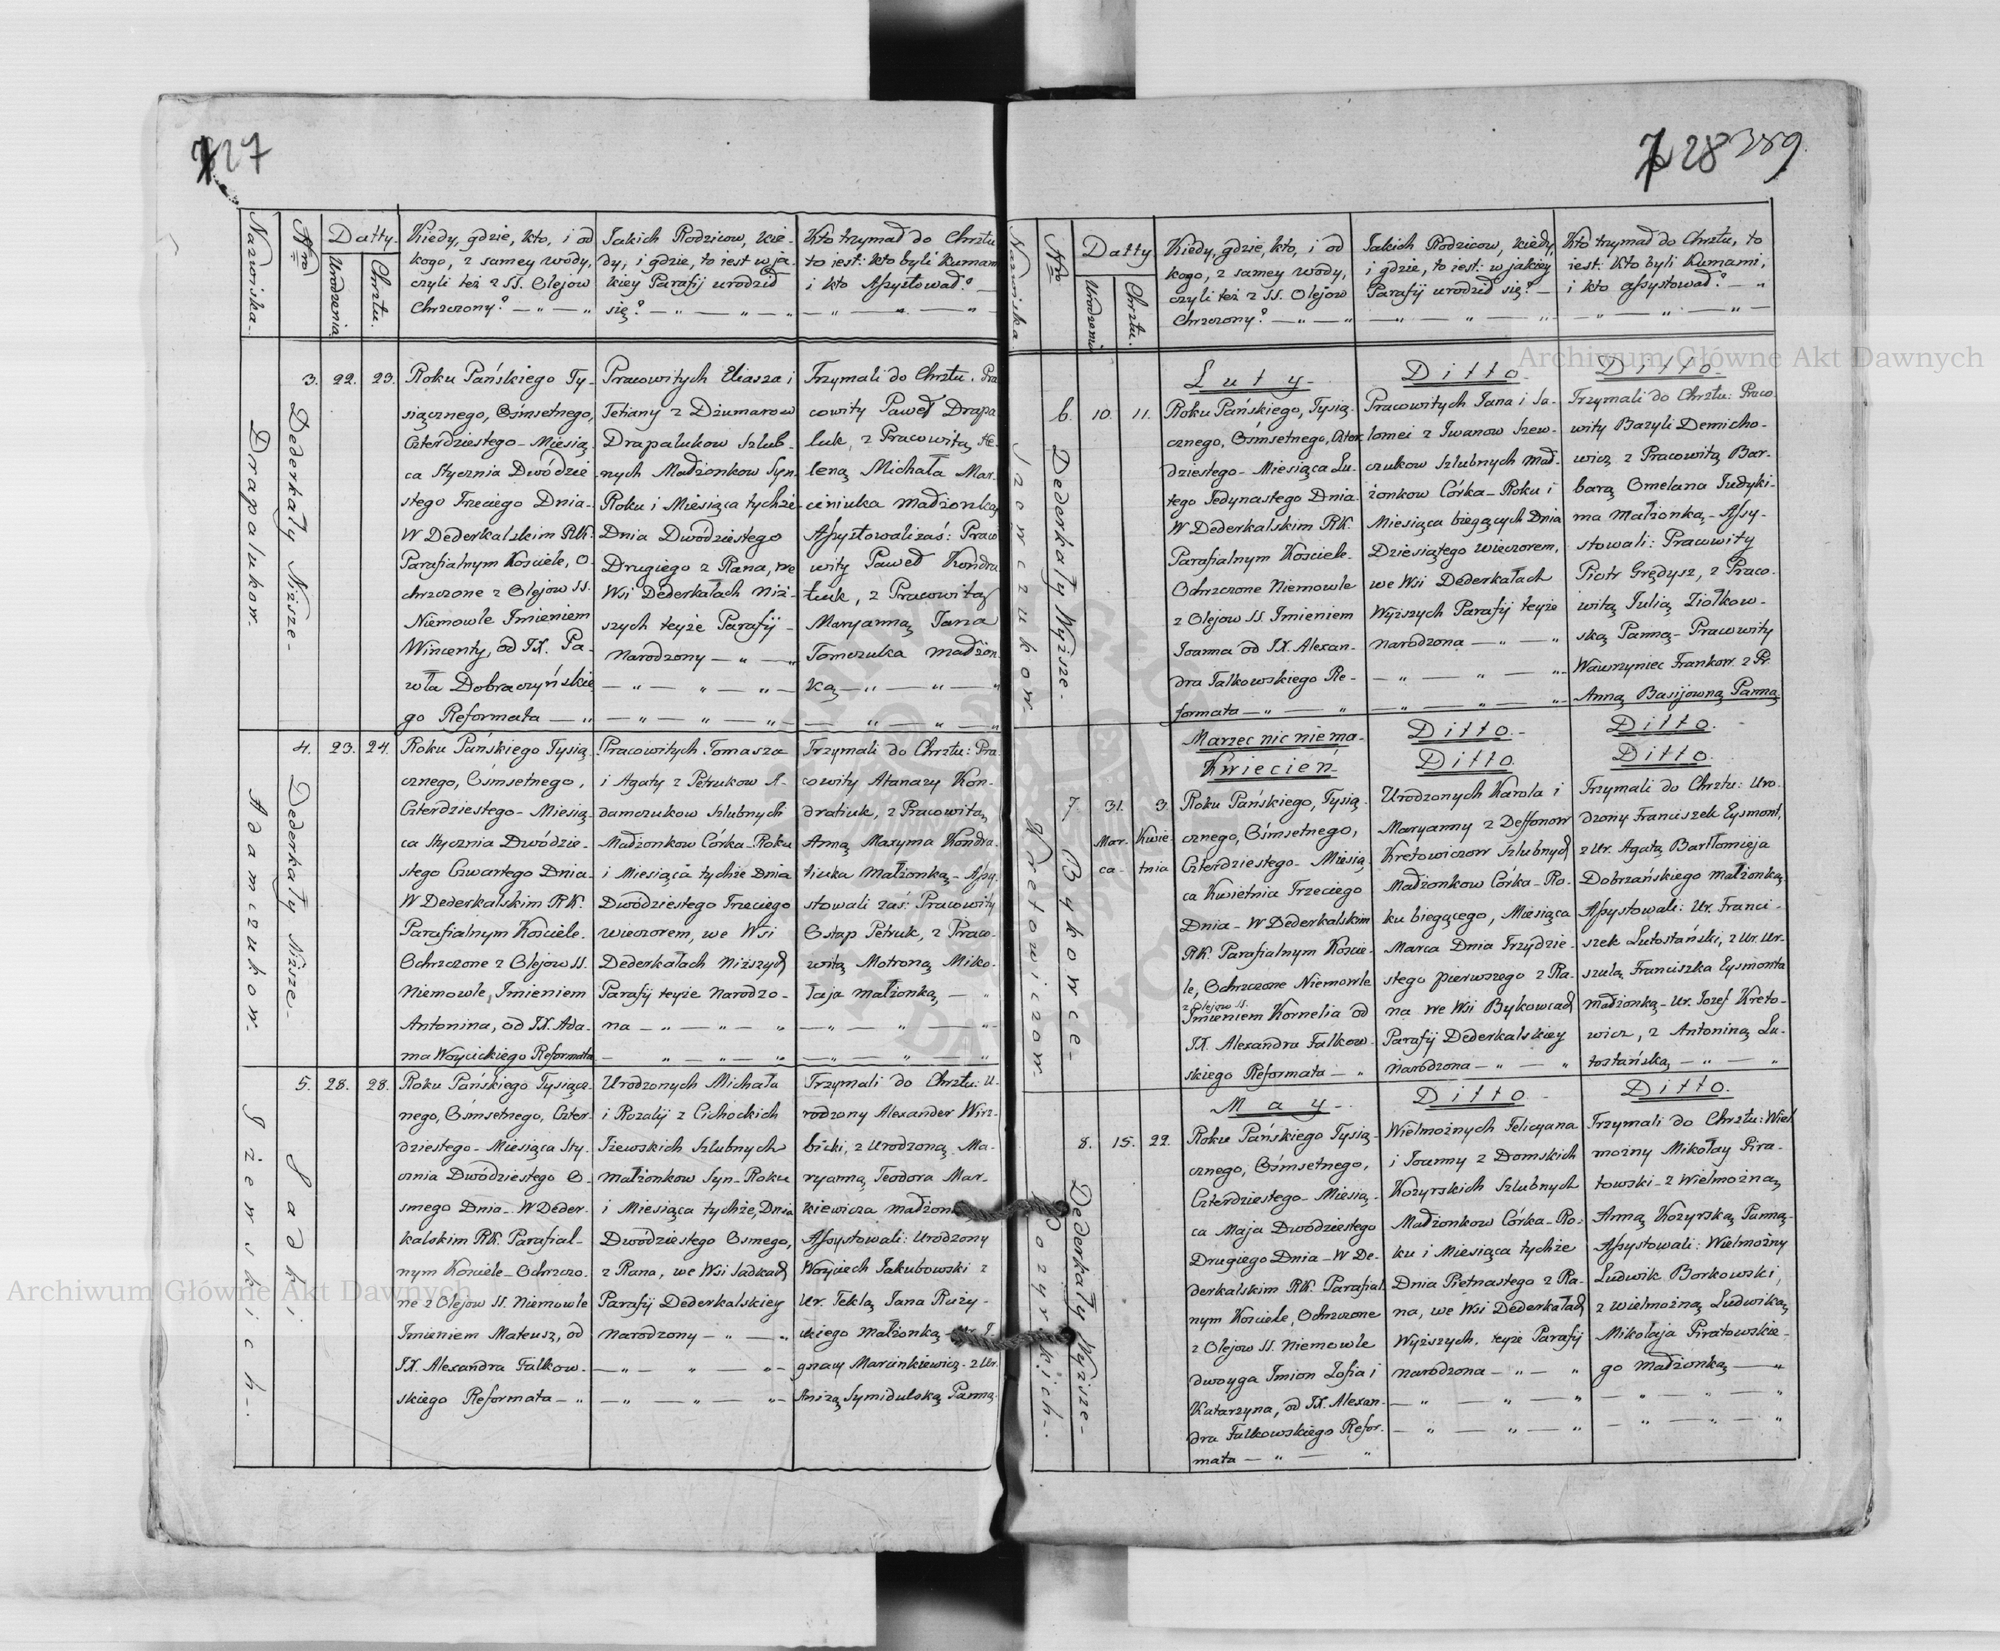 727
Nazwiska.
Nro
Datty.
Urodzenia
Chrztu.
Kiedy, gdzie, kto, i od
kogo, z samey wody,
czyli też z SS. Olejow
Chrzczony? — „ — „
Jakich Rodzicow, kie-
dy, i gdzie, to iest w ja-
kiey Parafij urodził
się? — „ — „ — „
Kto trzymał do Chrztu
to iest: kto byli Kumam
i kto Assystował? —
— „ — „ — „ —
Drapalukow.
Dederkały Niższe-
3. 22. 23.
Roku Pańskiego Ty-
siącznego, Ośmsetnego,
Czterdziestego - Miesią
ca Stycznia Dwódzie
stego Trzeciego Dnia-
W Dederkalskim RK.
Parafialnym Kosciele, O-
chrzczone z Olejow SS.
Niemowle Imieniem
Wincenty, od IX. Pa-
wła Dobraczyńskie
go Reformata — „
Pracowitych Eliasza i
Tetiany z Dziumarow
Drapalukow Szlub-
nych Małżonkow Syn.
Roku i Miesiąca tychże
Dnia Dwódziestego
Drugiego z Rana, we
Wsi Dederkałach Niż-
szych teyże Parafij -
Narodzony — „ — „
— „ — „ — „ —
— „ — „ — „ —
Trzymali do Chrztu: Pra
cowity Paweł Drapa
luk, z Pracowitą He-
leną Michała Mar-
ciniuka małżonką
Assystowali zaś: Praco
wity Paweł Kondra
tiuk, z Pracowitą
Maryanną Jana
Tomczuka małżon
ką — „ — „ — „
— „ — „ — „
Adamczukow.
Dederkały Niższe-
4. 23. 24.
Roku Pańskiego Tysią
cznego, Ośmsetnego,
Czterdziestego - Miesią
ca Stycznia Dwódzie-
stego Czwartego Dnia-
W Dederkalskim RK.
Parafialnym Kosciele-
Ochrzczone z Olejow SS.
Niemowle, Imieniem
Antonina, od IX. Ada-
ma Woycickiego Reformata
Pracowitych Tomasza
i Agaty z Petrukow A-
damczukow Szlubnych
Małżonkow Córka- Roku
i Miesiąca tychże Dnia
Dwódziestego Trzeciego
wieczorem, we Wsi
Dederkałach Niższych
Parafij teyże Narodzo-
na — „ — „ — „
— „ — „ — „
Trzymali do Chrztu: Pra
cowity Atanazy Kon-
dratiuk, z Pracowitą
Anną Maxyma Kondra-
tiuka Małżonką - Assy
stowali zaś: Pracowity
Ostap Petruk, z Praco-
witą Motroną Miko-
łaja małżonką, — „
— „ — „ — „
— „ — „ — „
Iżewskich-
Sadki
5. 28. 28.
Roku Pańskiego Tysiącz-
nego, Ośmsetnego, Czter-
dziestego - Miesiąca Sty-
cznia Dwódziestego O-
smego Dnia - W Deder-
kalskim RK. Parafial-
nym Kosciele - Ochrzczo-
ne z Olejow SS. Niemowle
Imieniem Mateusz, od
IX. Alexandra Falkow-
skiego Reformata - „
Urodzonych Michała
i Rozalij z Cichockich
Iżewskich Szlubnych
małżonkow Syn - Roku
i Miesiąca tychże, Dnia
Dwodziestego Osmego,
z Rana, we Wsi Sadkach
Parafij Dederkalskiey
Narodzony — „ — „
— „ — „ — „ —
— „ — „ — „ —
Trzymali do Chrztu: U-
rodzony Alexander Wirz-
bicki, z Urodzoną Ma-
ryanną Teodora Mar-
kiewicza małżon
Assystowali: Urodzony
Woyciech Jakubowski z
Ur. Teklą Jana Ruży-
ckiego małżonką
gnacy Marcinkiewicz - z Ur.
Anizą Symidulską Panną
28 389.
Nazwiska.
Nro
Datty
Urodzenia
Chrztu.
Kiedy, gdzie, kto, i od
kogo, z samey wody,
czyli też z SS. Olejow
Chrzczony? — „ — „
Jakich Rodzicow, kiedy,
i gdzie, to iest: w jakiey
Parafij urodził się? —
— „ — „ — „
Kto trzymał do Chrztu, to
iest: Kto byli Kumami,
i kto assystował? — „
— „ — „ — „ —
Szewczukow.
Dederkały Wyższe-
Luty-
Ditto-
Ditto-
6. 10. 11.
Roku Pańskiego, Tysią-
cznego, Ośmsetnego, Czter-
dziestego - Miesiąca Lu-
tego Jedynastego Dnia-
W Dederkalskim RK.
Parafialnym Kosciele-
Ochrzczone Niemowle
z Olejow SS. Imieniem
Joanna od IX. Alexan-
dra Falkowskiego Re-
formata — „ — „
Pracowitych Jana i Sa-
lomei z Iwanow Szew-
czukow Szlubnych mał-
żonkow Córka - Roku i
Miesiąca biegących Dnia
Dziesiątego wieczorem,
we Wsi Dederkałach
Wyższych Parafij teyże
narodzona — „ — „
— „ — „ — „
— „ — „ — „
Trzymali do Chrztu: Praco
wity Bazyli Demicho-
wicz z Pracowitą Bar-
barą Omelana Judyki-
ma małżonką, - Assy-
stowali: Pracowity
Piotr Grędysz, z Praco-
witą Julią Ziołkow-
ską Panną - Pracowity
Wawrzyniec Frankow. z Pr.
Anną Basijowną Panną
Marzec nic niéma-
Ditto-
Ditto-
Kwiecień
Ditto.
Ditto.
Kretowiczow.
Bykowce-
7. 31. 3.
Mar- Kwie-
ca- tnia
Roku Pańskiego, Tysią-
cznego, Ośmsetnego,
Czterdziestego - Miesią-
ca Kwietnia Trzeciego
Dnia - W Dederkalskim
RK. Parafialnym Koscie-
le, Ochrzczone Niemowle
z Olejow SS.
Imieniem Kornelia od
IX. Alexandra Falkow-
skiego Reformata — „
Urodzonych Karola i
Maryanny z Deffonow
Kretowiczow Szlubnych
Małżonkow Córka - Ro-
ku biegącego, Miesiąca
Marca Dnia Trzydzie-
stego pierwszego z Ra-
na we Wsi Bykowcach
Parafij Dederkalskiey
Narodzona — „ — „
Trzymali do Chrztu: Uro-
dzony Franciszek Eysmont,
z Ur. Agatą Bartłomieja
Dobrzańskiego małżonką-
Assystowali: Ur. Franci-
szek Lutostański, z Ur. Ur-
szulą Franciszka Eysmonta
małżonką - Ur. Jozef Kreto-
wicz, z Antoniną Lu-
tostańską, — „ — „
Kozyrskich-
Dederkały Wyższe-
May-
Ditto-
Ditto.
8. 15. 22.
Roku Pańskiego Tysią-
cznego, Ośmsetnego,
Czterdziestego - Miesią-
ca Maja Dwódziestego
Drugiego Dnia - W De-
derkalskim RK. Parafial
nym Kosciele, Ochrzczone
z Olejow SS. Niemowle
dwoyga Imion Zofia i
Katarzyna, od IX. Alexan-
dra Falkowskiego Refor-
mata — „ — „
Wielmożnych Felicyana
i Joanny z Domskich
Kozyrskich Szlubnych
Małżonkow Córka - Ro-
ku i Miesiąca tychże
Dnia Pietnastego z Ra-
na, we Wsi Dederkałach
Wyższych, teyże Parafij
narodzona — „ — „
— „ — „ — „
— „ — „ — „
Trzymali do Chrztu: Wiel
możny Mikołay Pira-
towski - z Wielmożną
Anną Kozyrską Panną-
Assystowali: Wielmożny
Ludwik Borkowski,
z Wielmożną Ludwiką
Mikołaja Piratowskie-
go małżonką — „
— „ — „ — „
— „ — „ — „
Archiwum Główne Akt Dawnych
Archiwum Główne Akt Dawnych